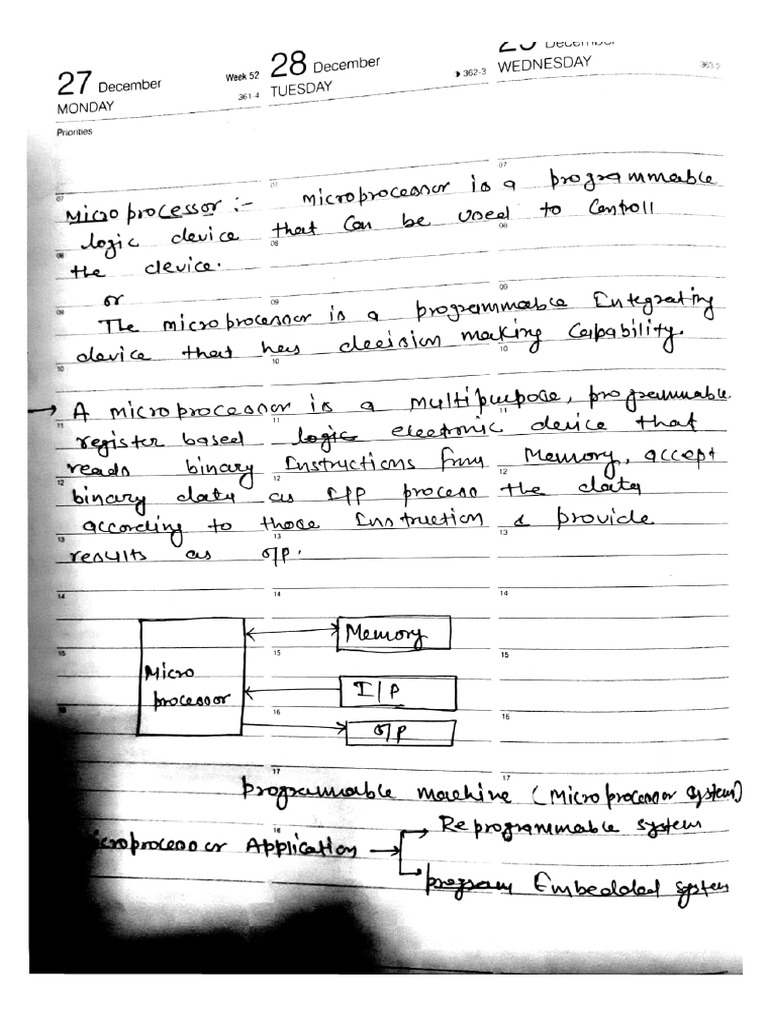 27 December
MONDAY
Week 52
361-4
28 December
TUESDAY
362-3
December
WEDNESDAY
363-2
Priorities
07 07 07
Microprocessor :- Microprocessor is a programmable
logic device that Can be used to Controll
08 08 08
the device.
or
09 09 09
The microprocessor is a programmable Integrating
device that has decision making Capability.
10 10 10
→ A microprocessor is a multipurpose, programmable
11 11 11
register based logic electronic device that
reads binary Instructions from Memory, accept
12 12 12
binary data as I/P process the data
according to those Instruction & provide
13 13 13
results as O/P.
14 14 14
Memory
15 15 15
Micro
processor
I/P
16 16 16
O/P
17 17
programmable machine (Microprocessor system)
Reprogrammable system
18
icroprocessor Application →
program Embedded system